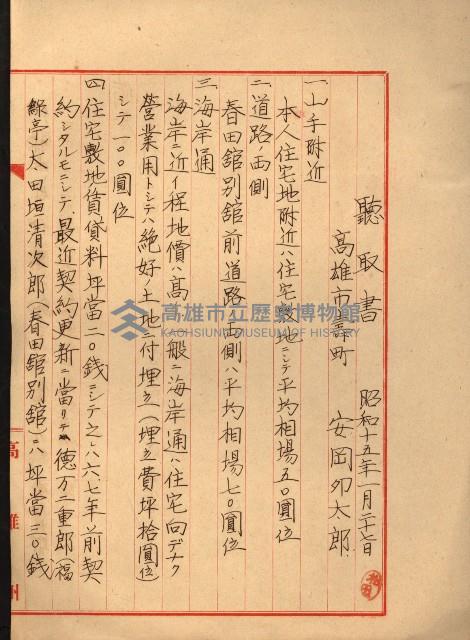 聽取書
昭和十五年一月二十七日
高雄市壽町 安岡卯太郎
一、山手附近
本人住宅地附近ハ住宅敷地ニシテ平均相場五〇圓位
二、道路ノ西側
春田舘別舘前道路西側ハ平均相場七〇圓位
三、海岸通
海岸ニ近イ程地價ハ高ク一般ニ海岸通ハ住宅向デナク
營業用トシテハ絶好ノ土地ニ付埋立(埋立費坪拾圓位)
シテ一〇〇圓位
四、住宅敷地賃貸料坪當二〇錢ニシテ之ハ六、七年前契
約シタルモニシテ、最近契約更新ニ當リテハ德万二重郎(福
緑亭)太田垣清次郎(春田舘別舘)ハ坪當三〇錢
高雄州
高雄市立歷史博物館
KAOHSIUNG MUSEUM OF HISTORY